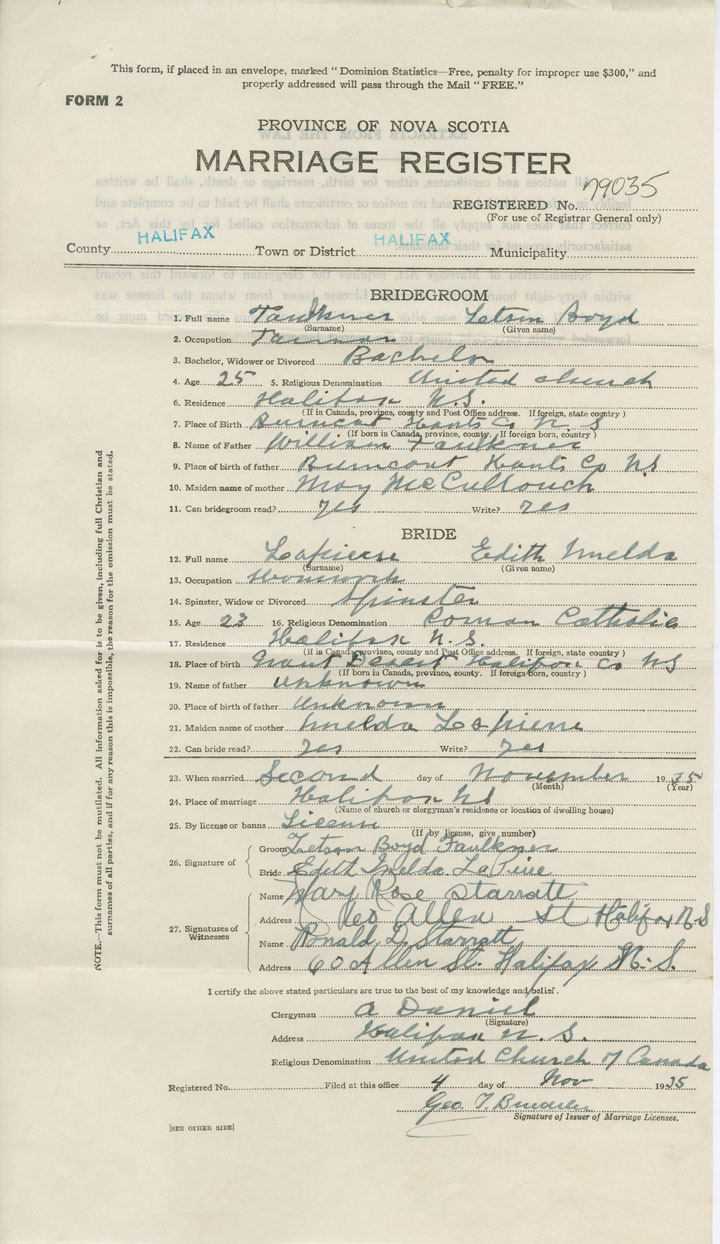 This form, if placed in an envelope, marked "Dominion Statistics—Free, penalty for improper use $300," and
properly addressed will pass through the Mail "FREE."
FORM 2
PROVINCE OF NOVA SCOTIA
MARRIAGE REGISTER
REGISTERED No. 79035
(For use of Registrar General only)
County HALIFAX Town or District HALIFAX Municipality
BRIDEGROOM
1. Full name Faulkner Letson Boyd
(Surname) (Given name)
2. Occupation Farmer
3. Bachelor, Widower or Divorced Bachelor
4. Age 25 5. Religious Denomination United church
6. Residence Halifax N.S.
(If in Canada, province, county and Post Office address. If foreign, state country)
7. Place of Birth Burncoat Hants Co N S
(If born in Canada, province, county. If foreign born, country)
8. Name of Father William Faulkner
9. Place of birth of father Burncoat Hants Co NS
10. Maiden name of mother May McCullouch
11. Can bridegroom read? yes Write? yes
BRIDE
12. Full name Lapierre Edith Imelda
(Surname) (Given name)
13. Occupation Housework
14. Spinster, Widow or Divorced Spinster
15. Age 23 16. Religious Denomination Roman Catholic
17. Residence Halifax N.S.
(If in Canada, province, county and Post Office address. If foreign, state country)
18. Place of birth Grant Desert Halifax Co NS
(If born in Canada, province, county. If foreign born, country)
19. Name of father Unknown
20. Place of birth of father Unknown
21. Maiden name of mother Imelda Lapierre
22. Can bride read? yes Write? yes
23. When married Second day of November 1935
(Month) (Year)
24. Place of marriage Halifax NS
(Name of church or clergyman's residence or location of dwelling house)
25. By license or banns License
(If by license, give number)
26. Signature of
Groom Letson Boyd Faulkner
Bride Edith Imelda LaPierre
27. Signatuses of Witnesses
Name Mary Rose Starratt
Address 60 Allen St Halifax N S
Name Ronald D. Starratt
Address 60 Allen St. Halifax N.S.
I certify the above stated particulars are true to the best of my knowledge and belief.
Clergyman A Daniel
(Signature)
Address Halifax N.S.
Religious Denomination United Church of Canada
Registered No. Filed at this office 4 day of Nov 1935
Geo T.
Signature of Issuer of Marriage Licenses.
[SEE OTHER SIDE]
NOTE.—This form must not be mutilated. All information asked for, is to be given, including full Christian and
surnames of all parties, and if for any reason this is impossible, the reason for the omission must be stated.